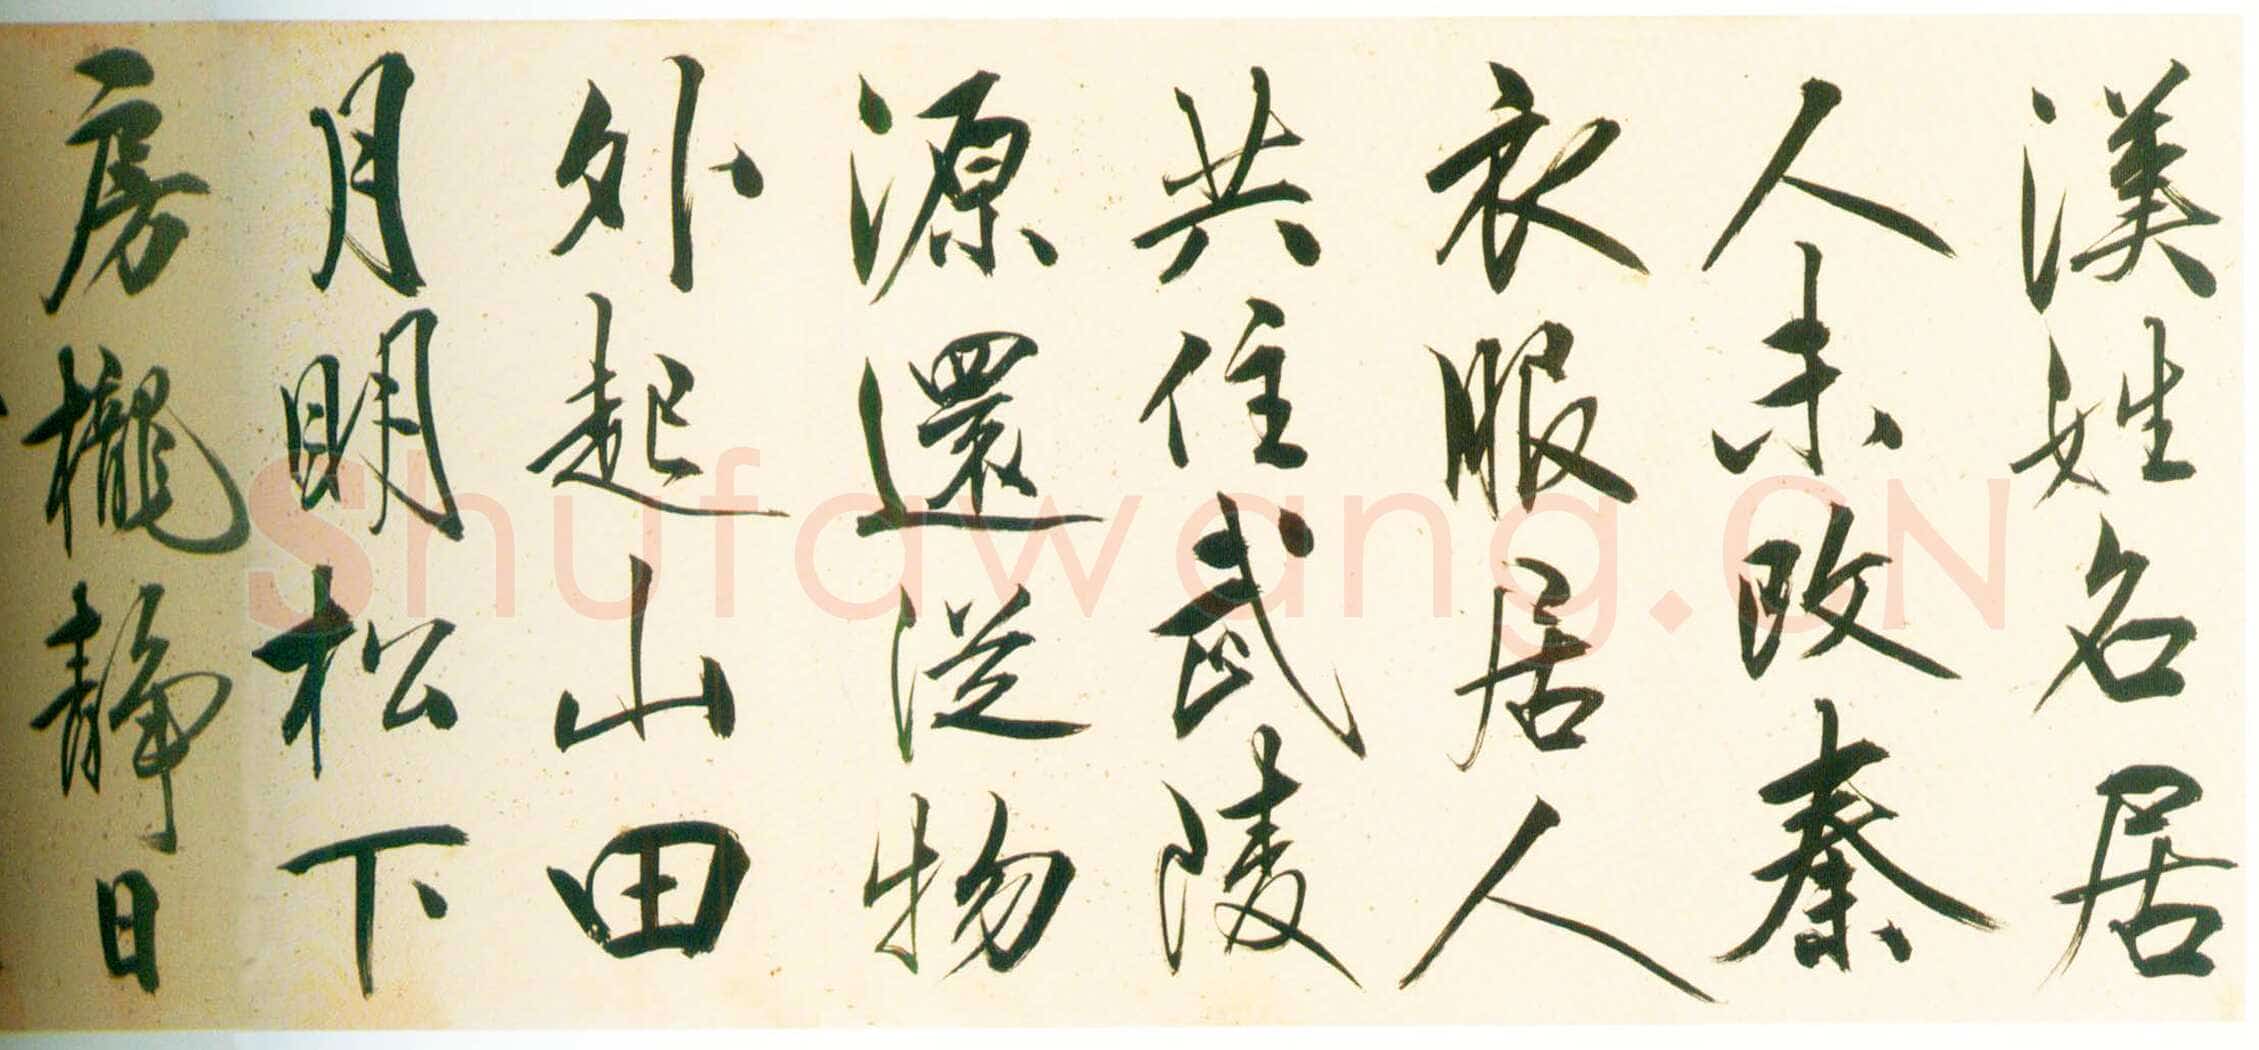 漢姓名居
人未改秦
衣服居人
共住武陵
源還從物
外起山田
月明松下
房櫳静日
Shufawang.CN